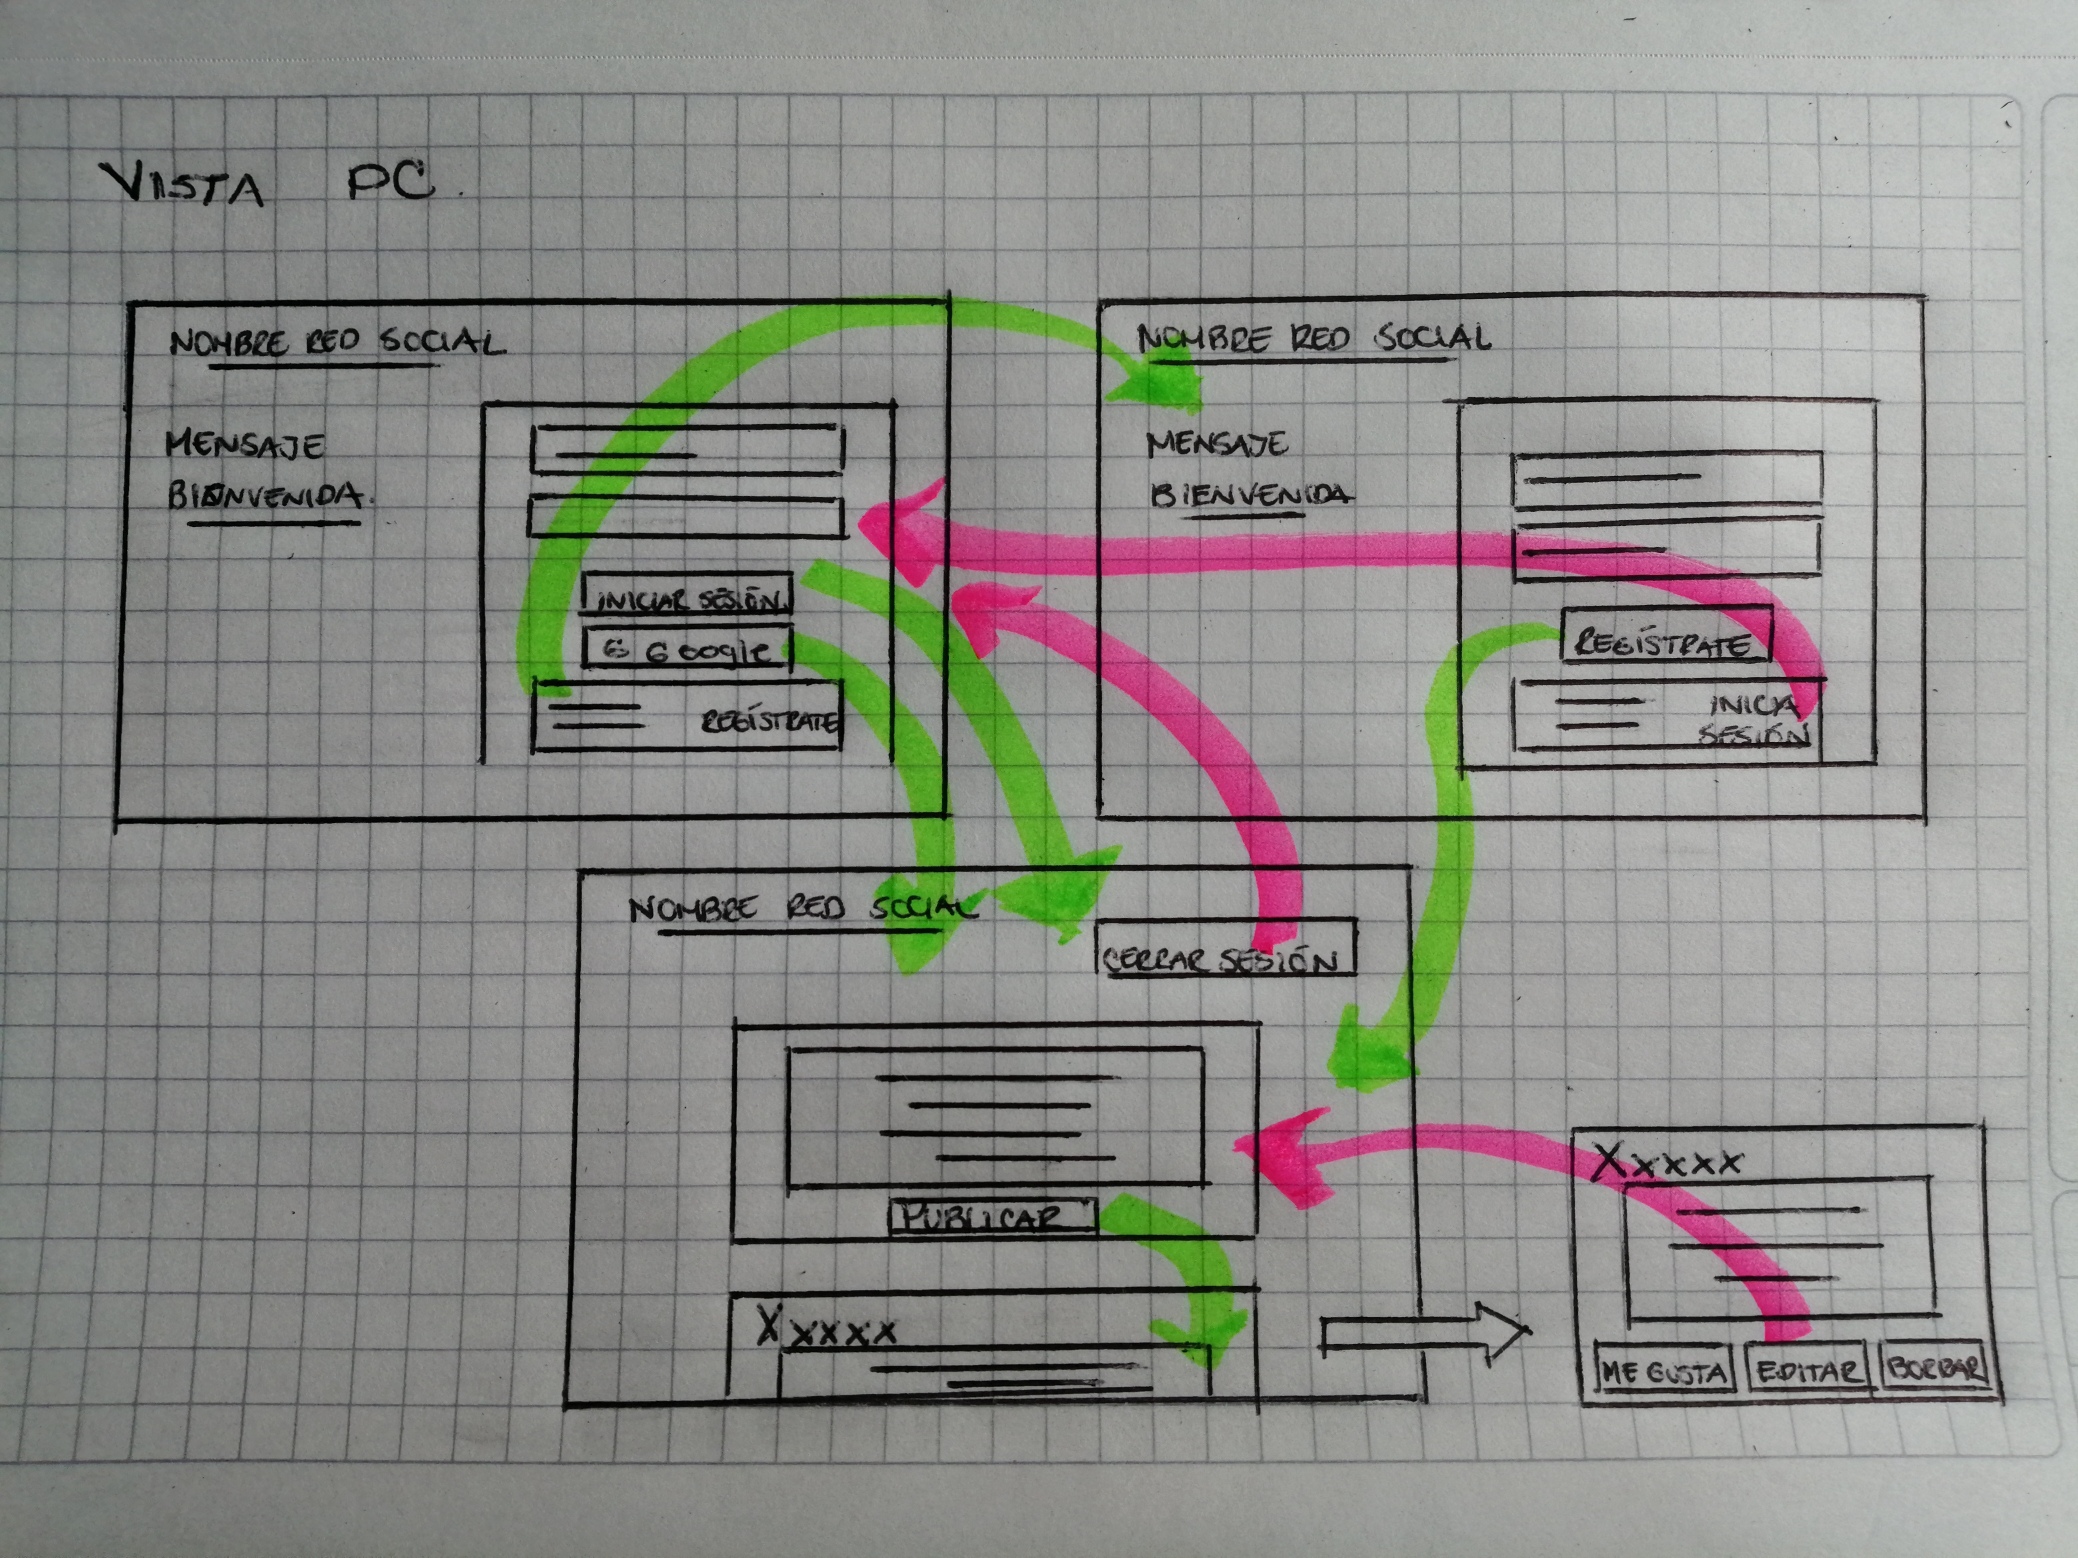 VISTA PC.
NOMBRE RED SOCIAL
MENSAJE
BIENVENIDA.
INICIAR SESIÓN
G Google
REGÍSTRATE
NOMBRE RED SOCIAL
MENSAJE
BIENVENIDA
REGÍSTRATE
INICIA
SESIÓN
NOMBRE RED SOCIAL
CERRAR SESIÓN
PUBLICAR
Xxxxx
Xxxxx
ME GUSTA
EDITAR
BORRAR